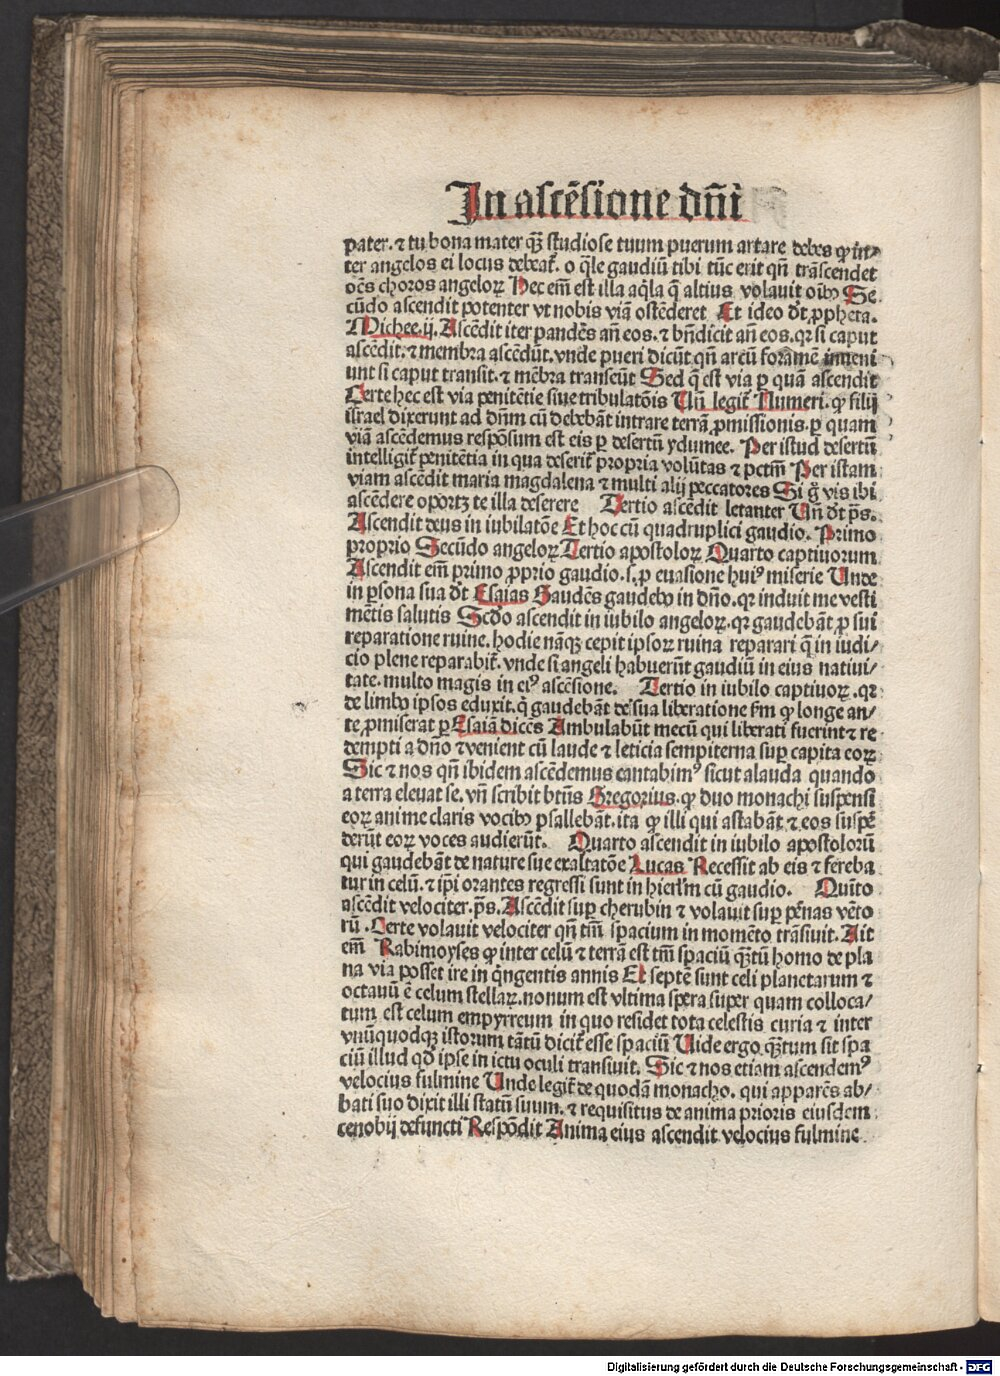 In ascēsione dñi
pater. ⁊ tu bona mater qꝫ studiose tuum puerum artare debes ꝙ in⸗
ter angelos ei locus debeat̄. o q̄le gaudiū tibi tūc erit qñ trāscendet
oēs choros angeloꝝ Hec em̄ est illa aq̄la q̄ altius volauit oībꝰ Se
cūdo ascendit potenter vt nobis viā ostēderet Et ideo dt̄ ꝓpheta.
Michee.ij. Ascēdit iter pandēs añ eos. ⁊ bñdicit añ eos. qꝛ si caput
ascēdit. ⁊ membra ascēdūt. vnde pueri dicūt qñ arcū foramē inueni
unt si caput transit. ⁊ mēbra transeūt Sed q̄ est via ꝑ quā ascendit
Certe hec est via penitētie siue tribulatōis Vñ legit̄ Numeri. ꝙ filij
israel dixerunt ad dñm cū debebāt intrare terrā ꝓmissionis. ꝑ quam
viā ascēdemus respōsum est eis ꝑ desertū ydumee. Per istud desertū
intelligit̄ penitētia in qua deserit̄ propria volūtas ⁊ pctm̄ Per istam
viam ascēdit maria magdalena ⁊ multi alij peccatores Si g̊ vis ibi
ascēdere oportꝫ te illa deserere Tertio ascēdit letanter Vñ dt̄ p̄s.
Ascendit deus in iubilatōe Et hoc cū quadruplici gaudio. Primo
proprio Secūdo angeloꝝ Tertio apostoloꝝ Quarto captiuorum
Ascendit em̄ primo ꝓprio gaudio. s. ꝑ euasione huiꝰ miserie Unde
in ꝑsona sua dt̄ Esaias Gaudēs gaudebo in dño. qꝛ induit me vesti
mētis salutis Scdo ascendit in iubilo angeloꝝ. qꝛ gaudebāt ꝓ sui
reparatione ruine. hodie nāqꝫ cepit ipsoꝝ ruina reparari q̄ in iudi⸗
cio plene reparabit̄. vnde si angeli habuerūt gaudiū in eius natiui⸗
tate. multo magis in eiꝰ ascēsione. Tertio in iubilo captiuoꝝ. qꝛ
de limbo ipsos eduxit. q̇ gaudebāt de sua liberatione fm̄ ꝙ longe an⸗
te ꝓmiserat ꝑ Esaiā dicēs Ambulabūt mecū qui liberati fuerint ⁊ re
dempti a dño ⁊ venient cū laude ⁊ leticia sempiterna suꝑ capita eoꝝ
Sic ⁊ nos qñ ibidem ascēdemus cantabimꝰ sicut alauda quando
a terra eleuat se. vñ scribit btūs Gregorius. ꝙ duo monachi suspensi
eoꝝ anime claris vocibꝰ psallebāt. ita ꝙ illi qui astabāt ⁊ eos suspē
derūt eoꝝ voces audierūt. Quarto ascendit in iubilo apostolorū
qui gaudebāt de nature sue exaltatōe Lucas Recessit ab eis ⁊ fereba
tur in celū. ⁊ ip̄i orantes regressi sunt in hierl'm cū gaudio. Quīto
ascēdit velociter. p̄s. Ascēdit suꝑ cherubin ⁊ volauit suꝑ pēnas vēto
rū. Certe volauit velociter qñ tm̄ spacium in momēto trāsiuit. Ait
em̄ Rabimoyses ꝙ inter celū ⁊ terrā est tm̄ spaciū qꝫtū homo de pla
na via posset ire in q̇ngentis annis Et septē sunt celi planetarum ⁊
octauū ē celum stellaꝝ. nonum est vltima spera super quam colloca⸗
tum est celum empyrreum in quo residet tota celestis curia ⁊ inter
vnūquodqꝫ istorum tātū dicit̄ esse spaciū Uide ergo qꝫtum sit spa
ciū illud qd̄ ipse in ictu oculi transiuit. Sic ⁊ nos etiam ascendemꝰ
velocius fulmine Unde legit̄ de quodā monacho. qui apparēs ab⸗
bati suo dixit illi statū suum. ⁊ requisitus de anima prioris eiusdem
cenobij defuncti Respōdit Anima eius ascendit velocius fulmine
Digitalisierung gefördert durch die Deutsche Forschungsgemeinschaft - DFG